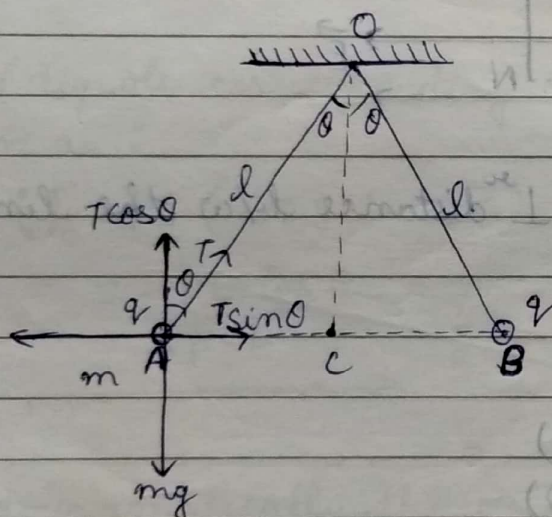 O
θ θ
l l.
Tcosθ
T
θ
q Tsinθ q
A C B
m
mg